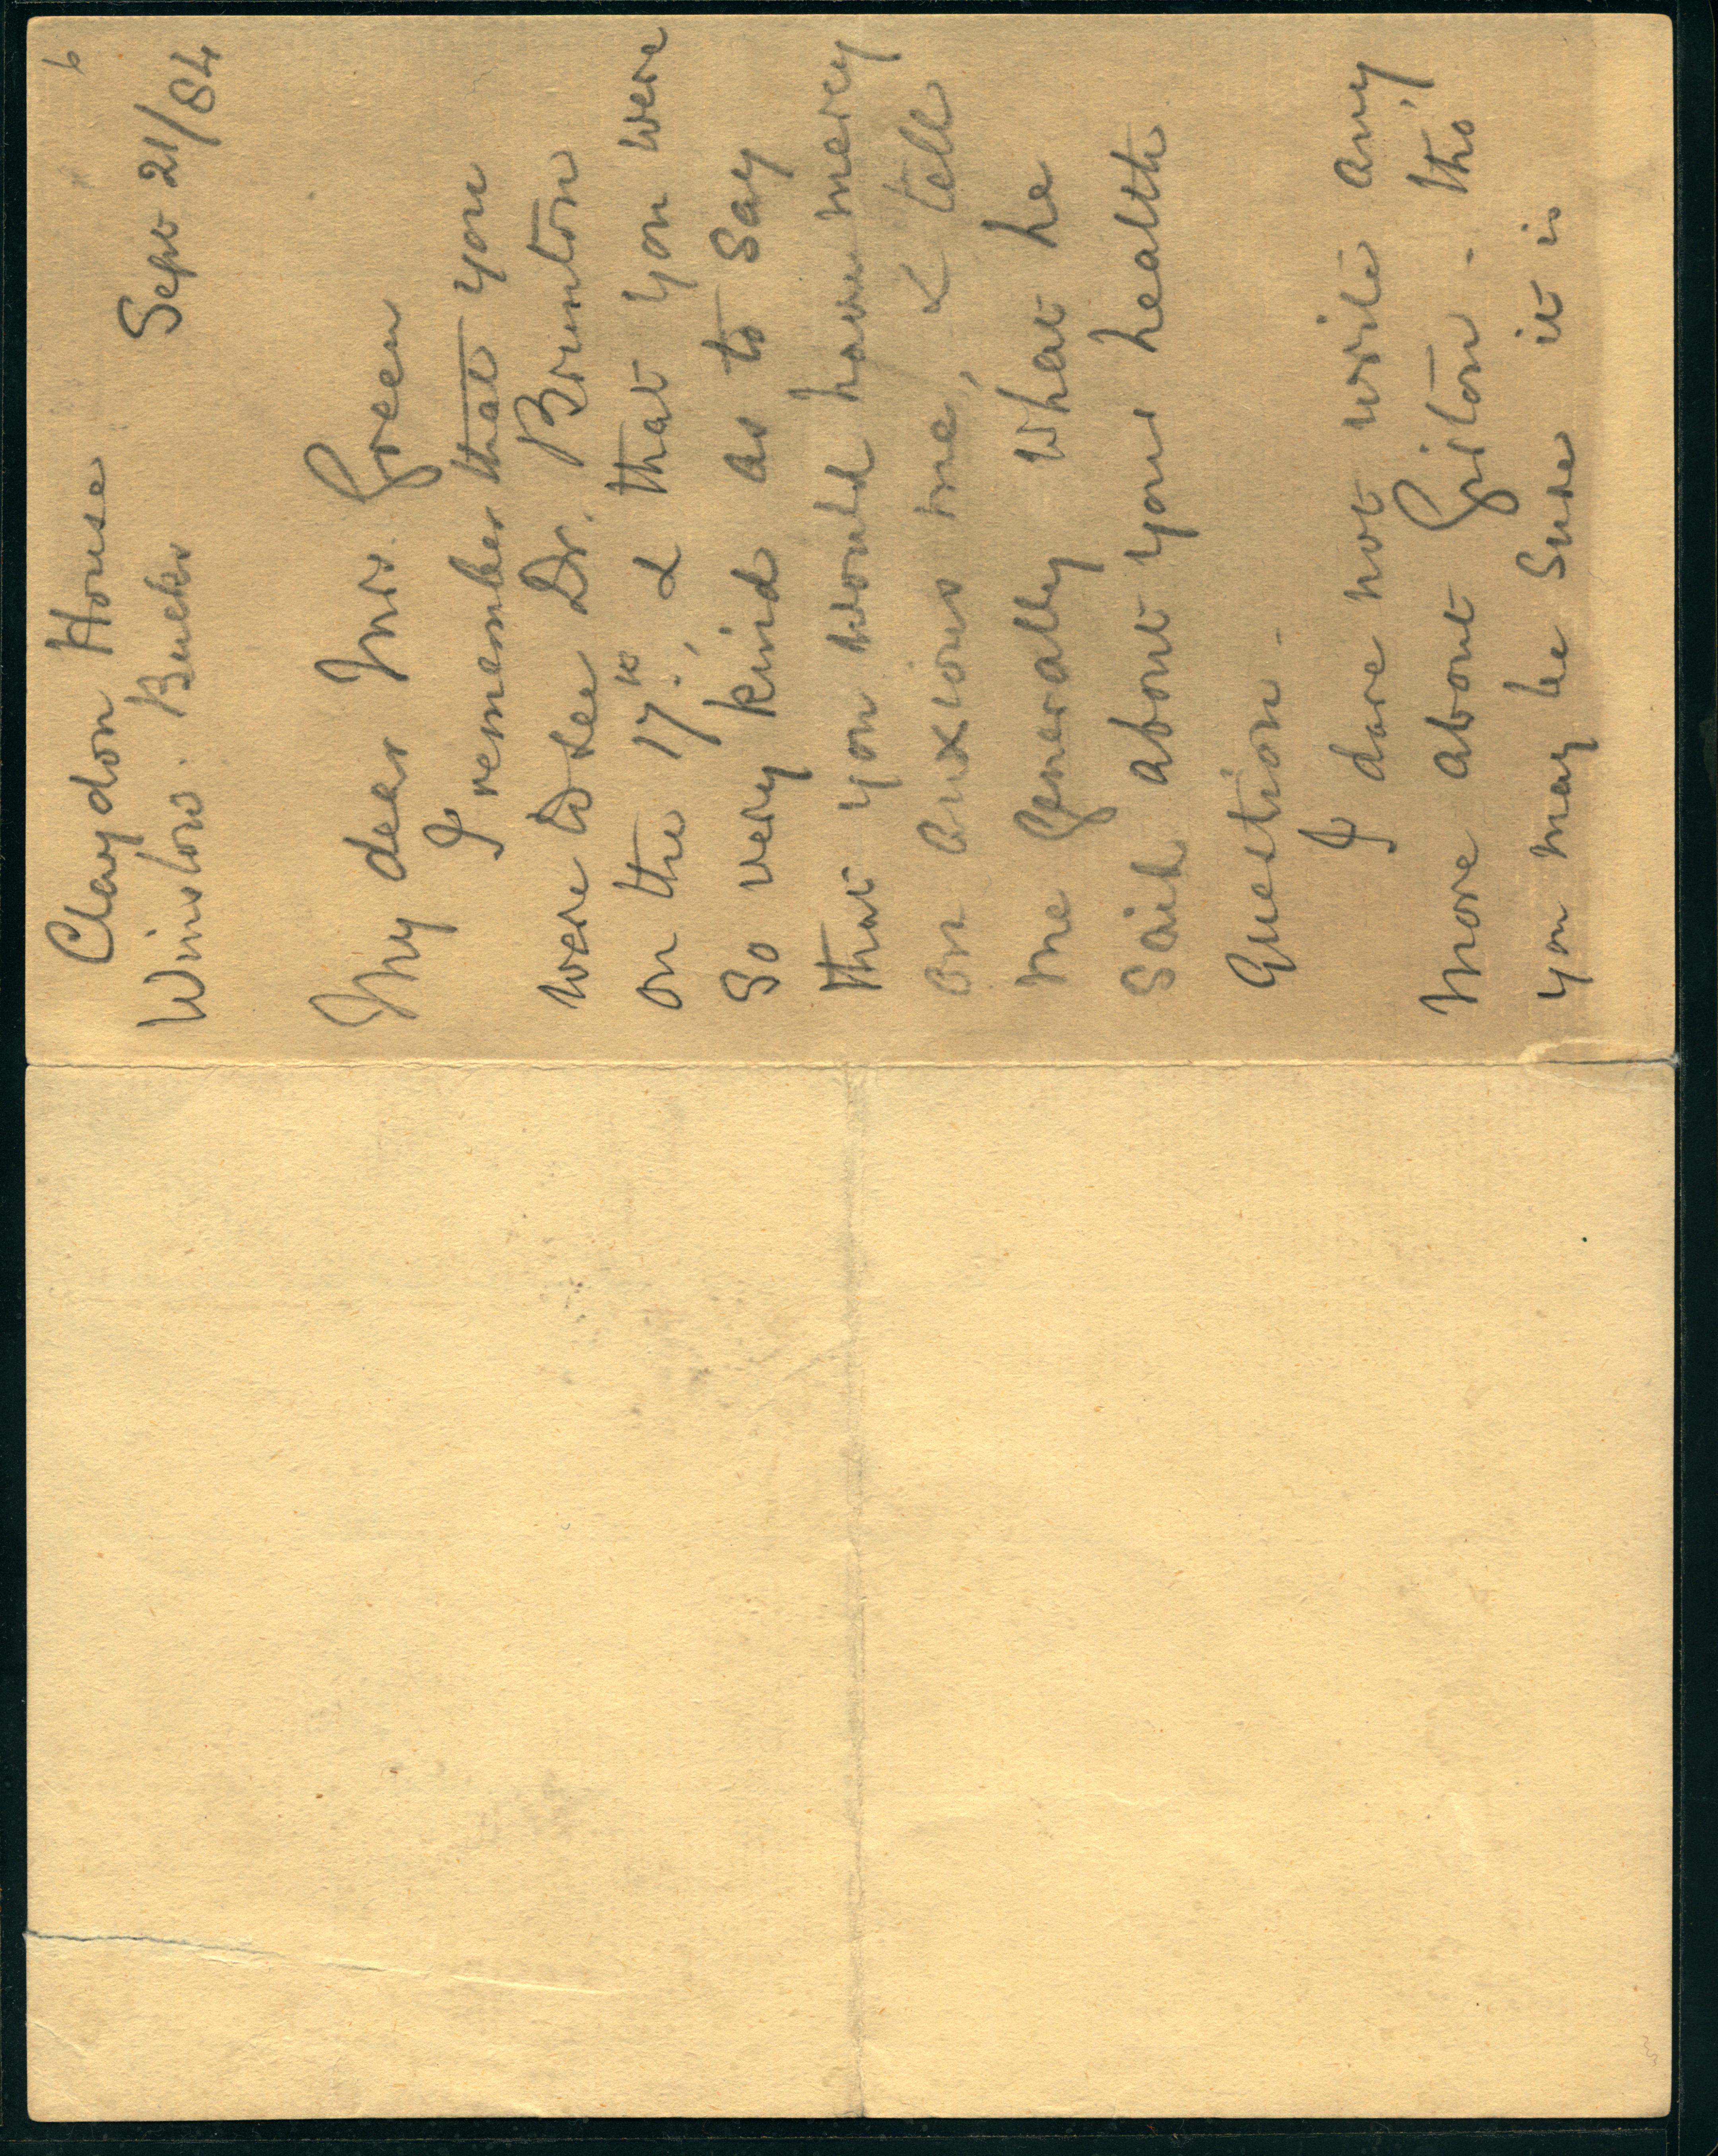 6
Claydon House
Winslow. Bucks
Sept 21/84
My dear Mrs. Green
I remember that you
were to see Dr. Brunton
on the 17th., & that you were
so very kind as to say
that you would have mercy
on anxious me, & tell
me generally what he
said about your health
Question.
I dare not write any
more about Girton - tho',
you may be sure it is